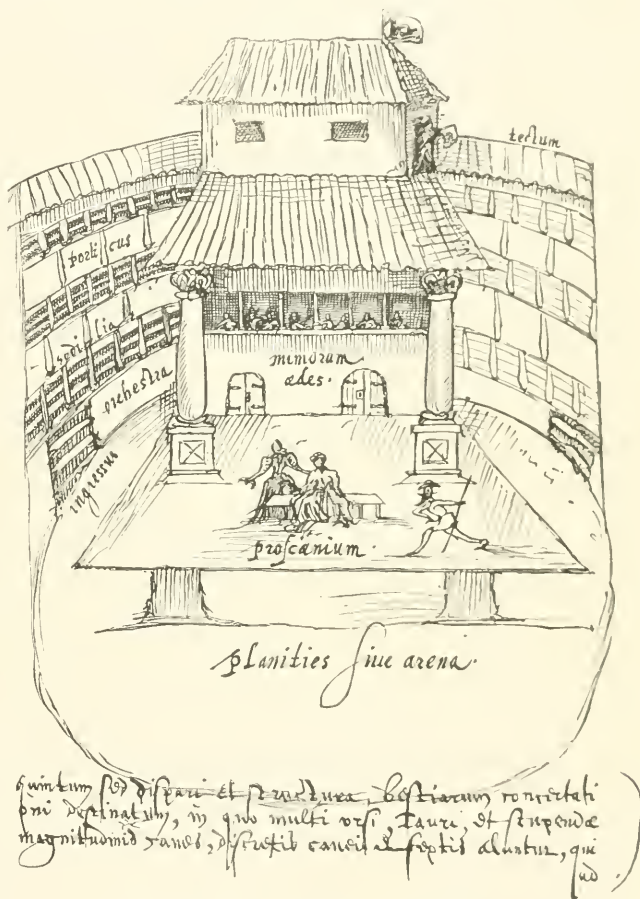 tectum
porticus
sedilia
orchestra
mimorum
ædes.
ingressus
proscænium.
planities siue arena.
quintum sed dispari et structura, bestiarum concertati
oni destinatum, in quo multi vrsi, Tauri, et stupendæ
magnitudinis canes, discretis caueis & septis aluntur, qui
ad